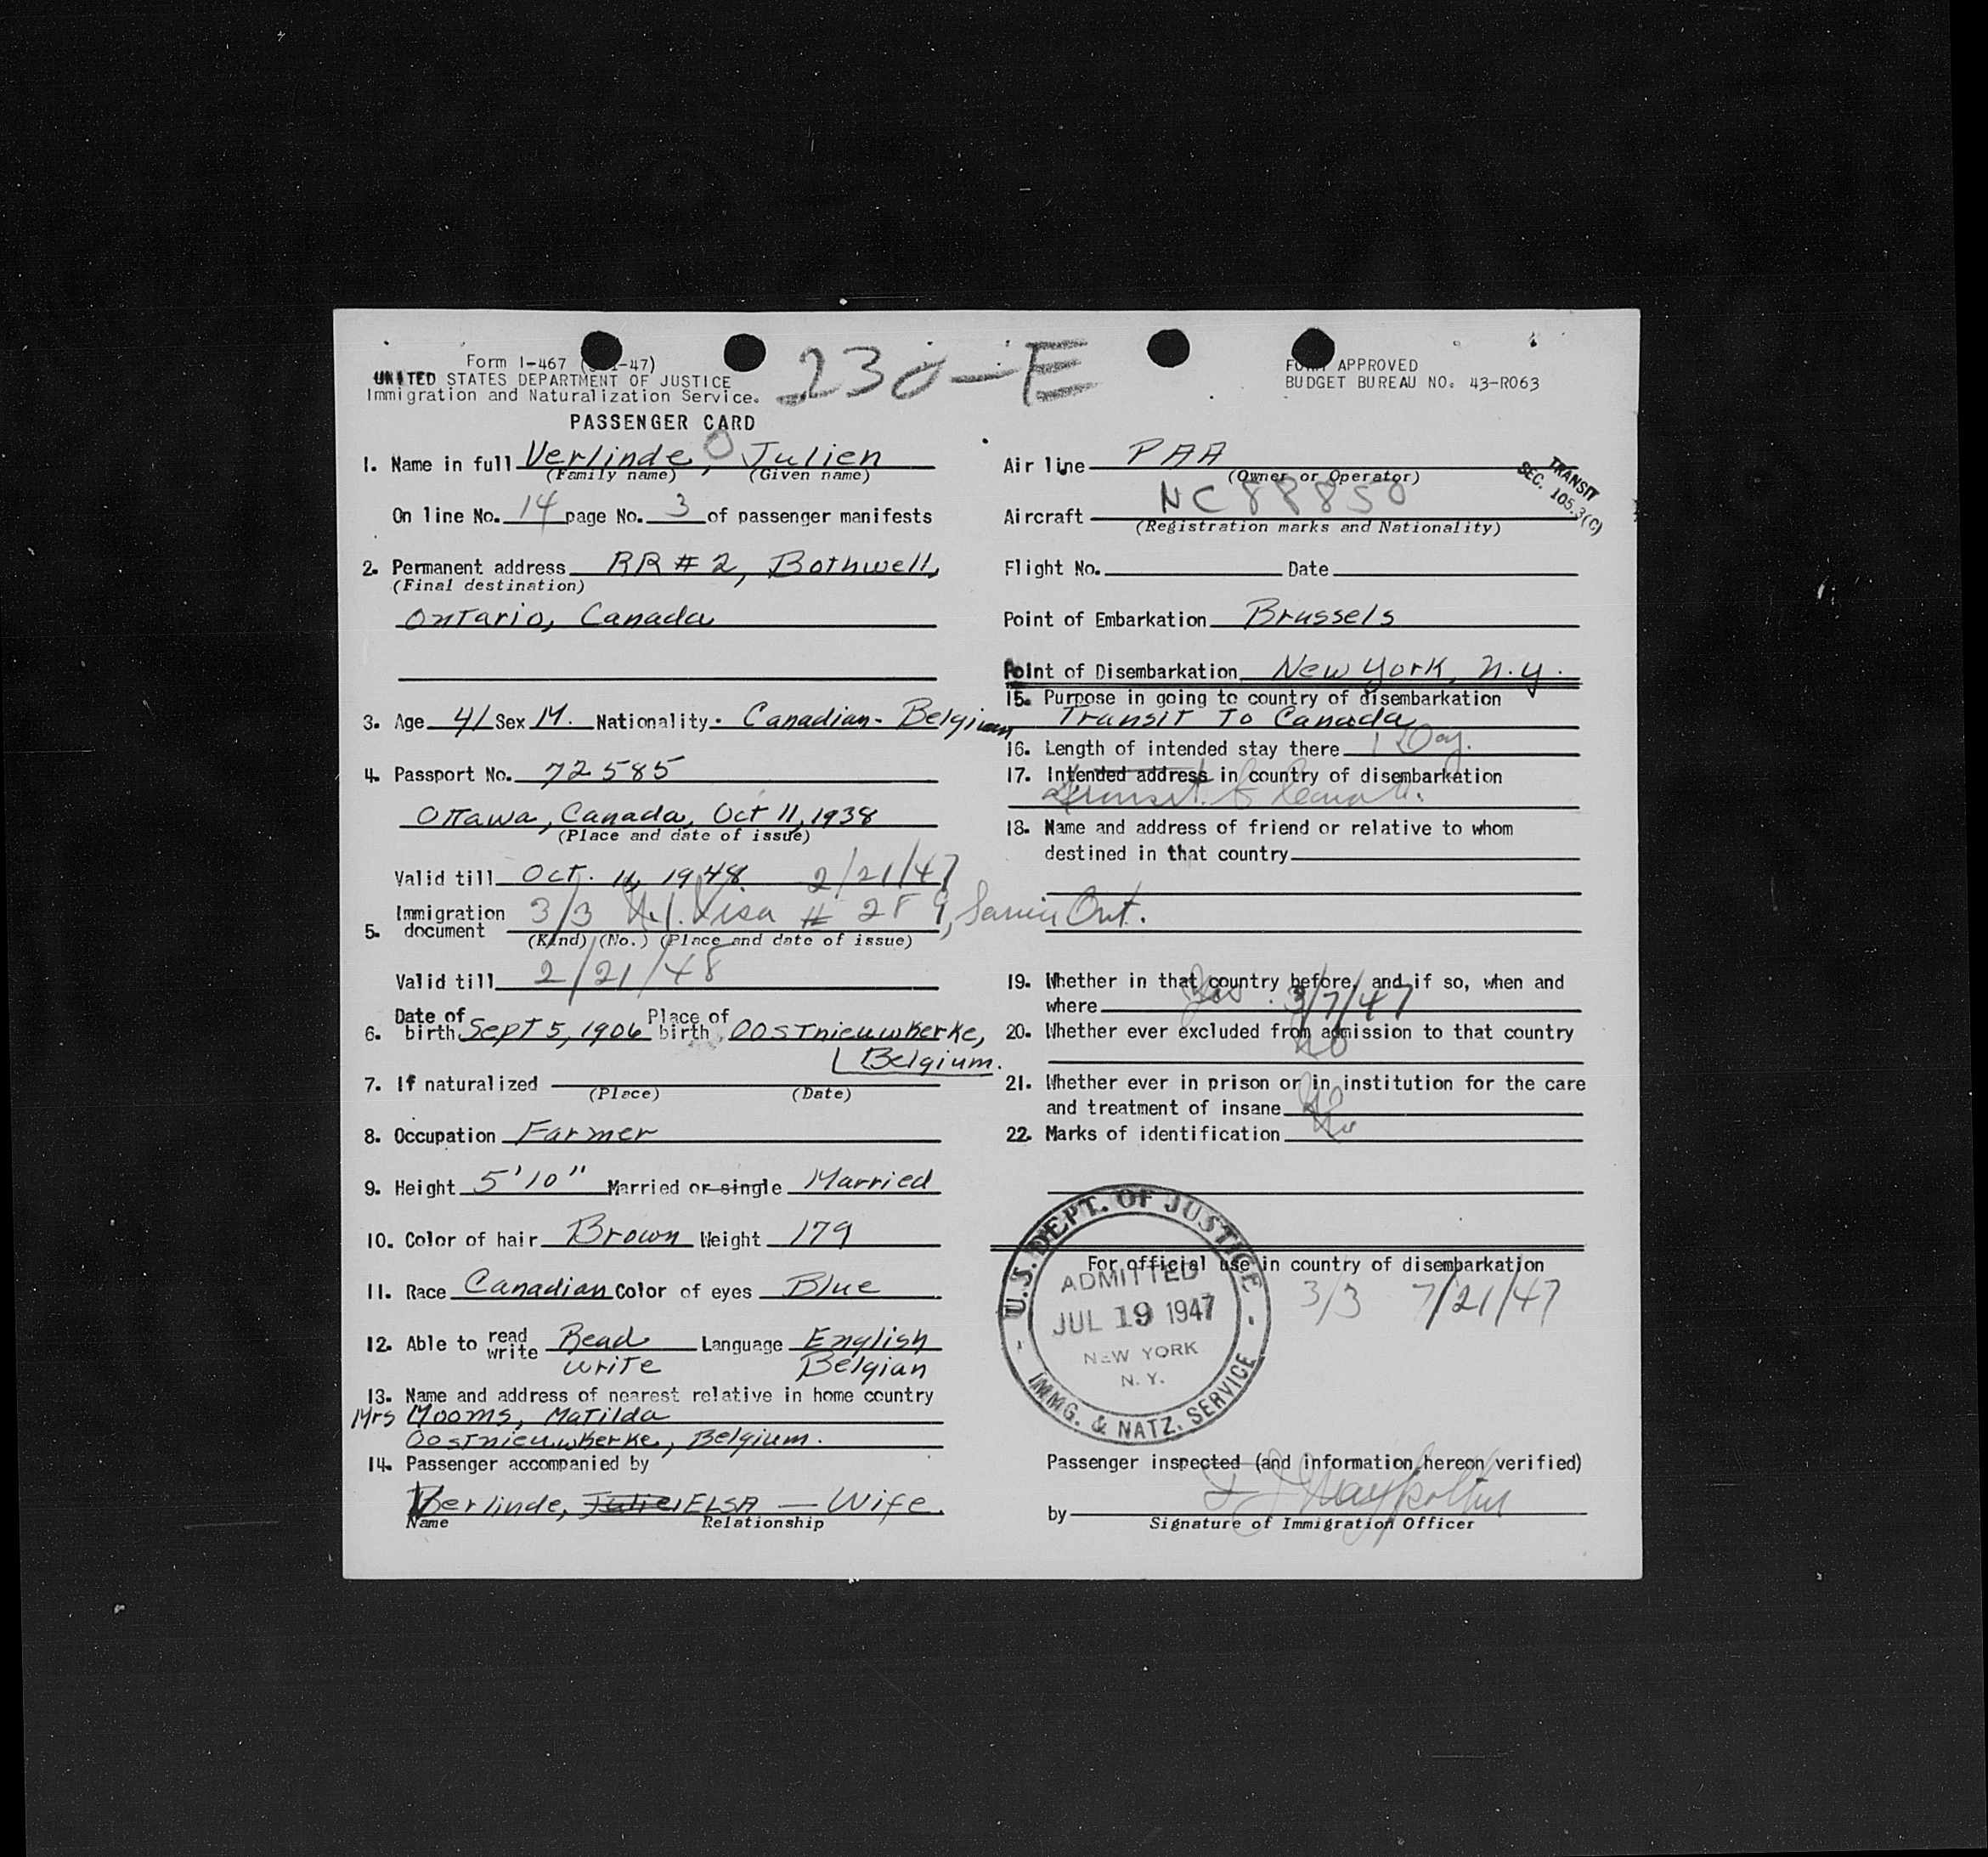 230-E
Form I-467 ( -47)
UNITED STATES DEPARTMENT OF JUSTICE
Immigration and Naturalization Service.
PASSENGER CARD
1. Name in full Verlinde, Julien
(Family name) (Given name)
On line No. 14 page No. 3 of passenger manifests
2. Permanent address RR # 2, Bothwell,
(Final destination)
Ontario, Canada
3. Age 41 Sex M. Nationality. Canadian - Belgian
4. Passport No. 72585
Ottawa, Canada, Oct 11, 1938
(Place and date of issue)
Valid till Oct. 11, 1948. 2/21/47
5. Immigration document 3/3 Visa # 289, Ont.
(Kind) (No.) (Place and date of issue)
Valid till 2/21/48
6. Date of birth Sept 5, 1906 Place of birth Oostnieuwkerke,
Belgium.
7. If naturalized
(Place) (Date)
8. Occupation Farmer
9. Height 5'10" Married or single Married
10. Color of hair Brown Weight 179
11. Race Canadian Color of eyes Blue
12. Able to read write Read Language English
write Belgian
13. Name and address of nearest relative in home country
Mrs Mooms, Matilda
Oostnieuwkerke, Belgium.
14. Passenger accompanied by
Verlinde, Julie ELSA — Wife.
Name Relationship
FORM APPROVED
BUDGET BUREAU NO. 43-R063
Air line PAA
(Owner or Operator)
TRANSIT
SEC. 105.3(C)
Aircraft NC88850
(Registration marks and Nationality)
Flight No. Date
Point of Embarkation Brussels
Point of Disembarkation New York, N.Y.
15. Purpose in going to country of disembarkation
Transit To Canada
16. Length of intended stay there 1 Day.
17. Intended address in country of disembarkation
Transit to Canada.
18. Name and address of friend or relative to whom
destined in that country
19. Whether in that country before, and if so, when and
where Yes. 3/7/47
20. Whether ever excluded from admission to that country
No
21. Whether ever in prison or in institution for the care
and treatment of insane No
22. Marks of identification No
For official use in country of disembarkation
3/3 7/21/47
U.S. DEPT. OF JUSTICE
ADMITTED
JUL 19 1947
NEW YORK
N. Y.
IMMG. & NATZ. SERVICE
Passenger inspected (and information hereon verified)
by
Signature of Immigration Officer